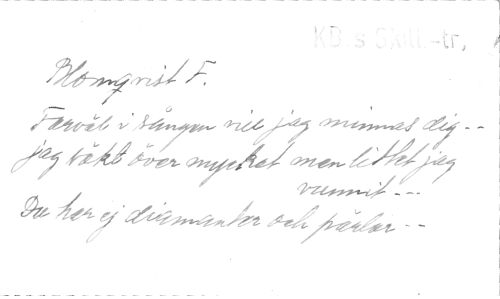 KB:s Skill.-tr,
Blomqvist F.
Farväl i sången vill jag minnas dig --
jag räkt över mycket men littet jag
vunnit ---
Du har ej diamanter och pärlor --